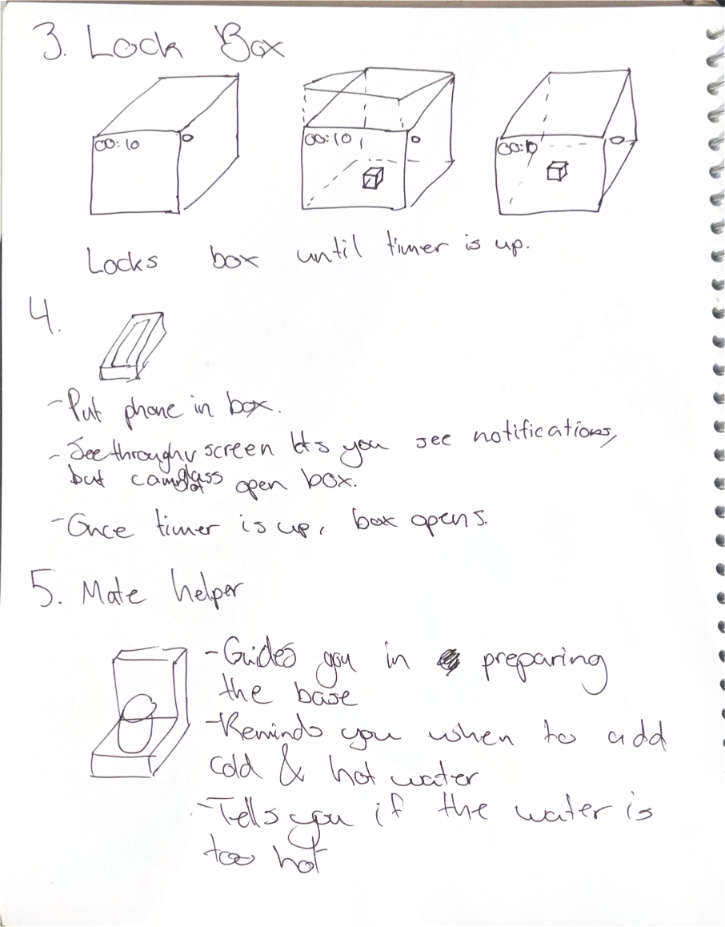 3. Lock Box
00:10 00:10 00:10
Locks box until timer is up.
4.
- Put phone in box.
- See through screen lets you see notifications,
glass
but cannot open box.
- Once timer is up, box opens.
5. Mate helper
- Guides you in preparing
the base
- Reminds you when to add
cold & hot water
- Tells you if the water is
too hot